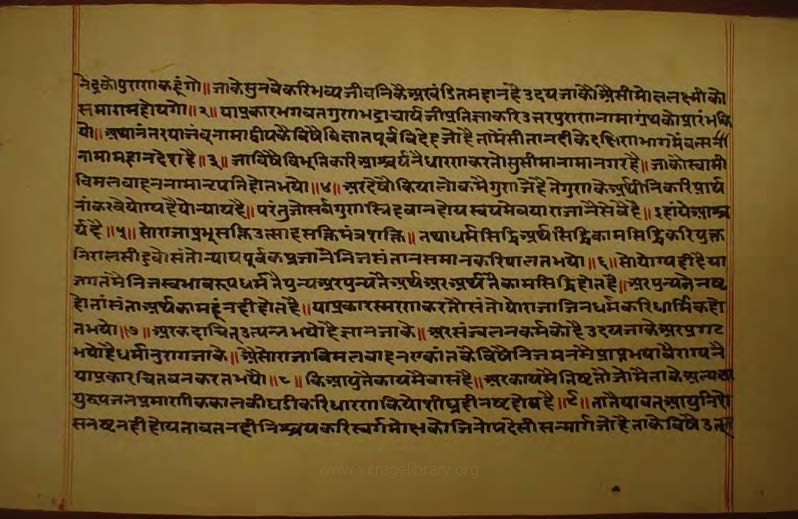 नेद्रको पुराण कहूंगो॥ जाके सुनबे करि भव्य जीवनिकै अखंडित महान है उदय जाको ऐसी मोक्ष लक्ष्मी को
समागम होयगो॥२॥ या प्रकार भगवत गुणभद्राचार्य जी प्रतिज्ञा करि उत्तरपुराण नामा ग्रंथ को प्रारंभ कि
यो॥ अथानंतर या जंबू नामा द्वीप के विषै विख्यात पूर्व विदेह जो है तामें सीता नदी के दक्षिण भाग में वत्स नी
नामा महान देश है॥३॥ जा विषै विभूति करि आश्चर्य नै धारण करतो सुसीमा नामा नगर है॥ जाको स्वामी
विमलवाहन नामा नृपति होत भयो॥४॥ अर देषो कि या लोक मै गुण जे है ते गुण के अर्थीनि करि प्रार्थ
ना करवे योग्य है यो न्याय है॥ परंतु जो सर्व गुण स्त्रिहवान होय स्वयमेव या राजा नै सेवै है॥ इहां ये आश्च
र्य है॥५॥ सो राजा प्रभूसक्ति उत्साहसक्ति मंत्रशक्ति॥ तथा धर्मसिद्धि अर्थसिद्धि कामसिद्धि करि युक्त
निरालसी हुवो संतो न्याय पूर्वक प्रजा नै निज संतान समान करि पालत भयो॥६॥ सो योग्य ही है या
जगत मै निज स्वभावरूप धर्म नै पुन्य अर पुन्य नै अर्थ अर अर्थ नै काम सिद्धि होत है॥ अर पुन्य नै नष्ट
होतां संतां अर्थ काम हूं नही होत है॥ या प्रकार स्मरण करतो संतो यो राजा जिनधर्म करि धार्मिक हो
त भयो॥७॥ अर कदाचित् उत्पन्न भयो है ज्ञान जाके॥ अर संज्वलन कर्म को है उदय जाके अर प्रगट
भयो है धर्मानुराग जाके॥ ऐसो राजा विमलवाहन एकांत के विषै निज मन मै प्राप्त भया वैराग्य नै
या प्रकार चितवन करत भयो॥८॥ कि आयु नै काय मै वास है॥ अर काय मै तिष्टतो जो मै ताकै अल्प आ
यु रूप जल प्रमाणीक काल की घडी करि धारण कियो शीघ्र ही नष्ट होय है॥९॥ तातै यावत् आयु निशे
स नष्ट नही होय तावत नही निश्चय करि स्वर्ग मोक्ष को जिनोपदेसी सन्मार्ग जो है ताके विषै उत्स
www.vitragelibrary.org